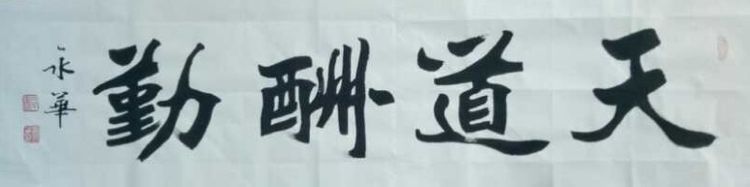 天道酬勤
永華